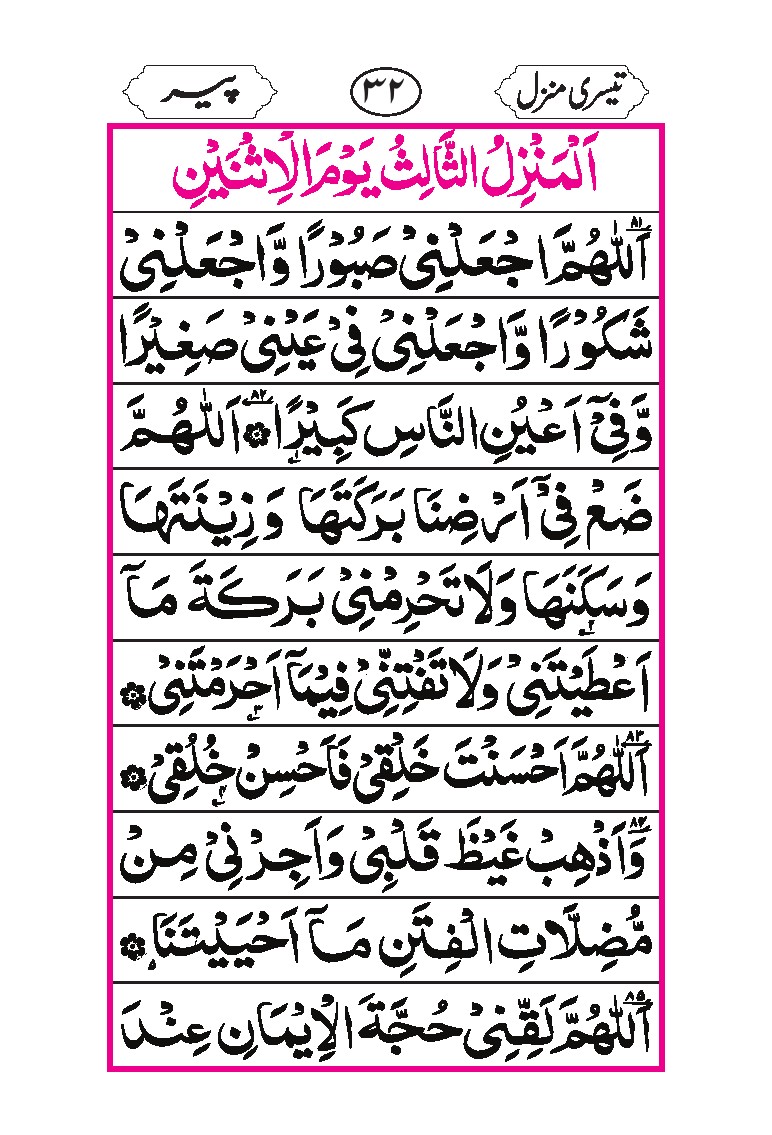 تیسری منزل ۳۲ پیر
اَلْمَنْزِلُ الثَّالِثُ يَوْمَ الْاِثْنَيْنِ
۸۱ اَللّٰهُمَّ اجْعَلْنِيْ صَبُوْرًا وَّاجْعَلْنِيْ
شَكُوْرًا وَّاجْعَلْنِيْ فِيْ عَيْنِيْ صَغِيْرًا
وَّفِيْٓ اَعْيُنِ النَّاسِ كَبِيْرًا ۸۲ اَللّٰهُمَّ
ضَعْ فِيْٓ اَرْضِنَا بَرَكَتَهَا وَزِيْنَتَهَا
وَسَكَنَهَا وَلَا تَحْرِمْنِيْ بَرَكَةَ مَآ
اَعْطَيْتَنِيْ وَلَا تَفْتِنِّيْ فِيْمَآ اَحْرَمْتَنِيْ
۸۳ اَللّٰهُمَّ اَحْسَنْتَ خَلْقِيْ فَاَحْسِنْ خُلُقِيْ
۸۴ وَاَذْهِبْ غَيْظَ قَلْبِيْ وَاَجِرْنِيْ مِنْ
مُّضِلَّاتِ الْفِتَنِ مَآ اَحْيَيْتَنَا
۸۵ اَللّٰهُمَّ لَقِّنِيْ حُجَّةَ الْاِيْمَانِ عِنْدَ